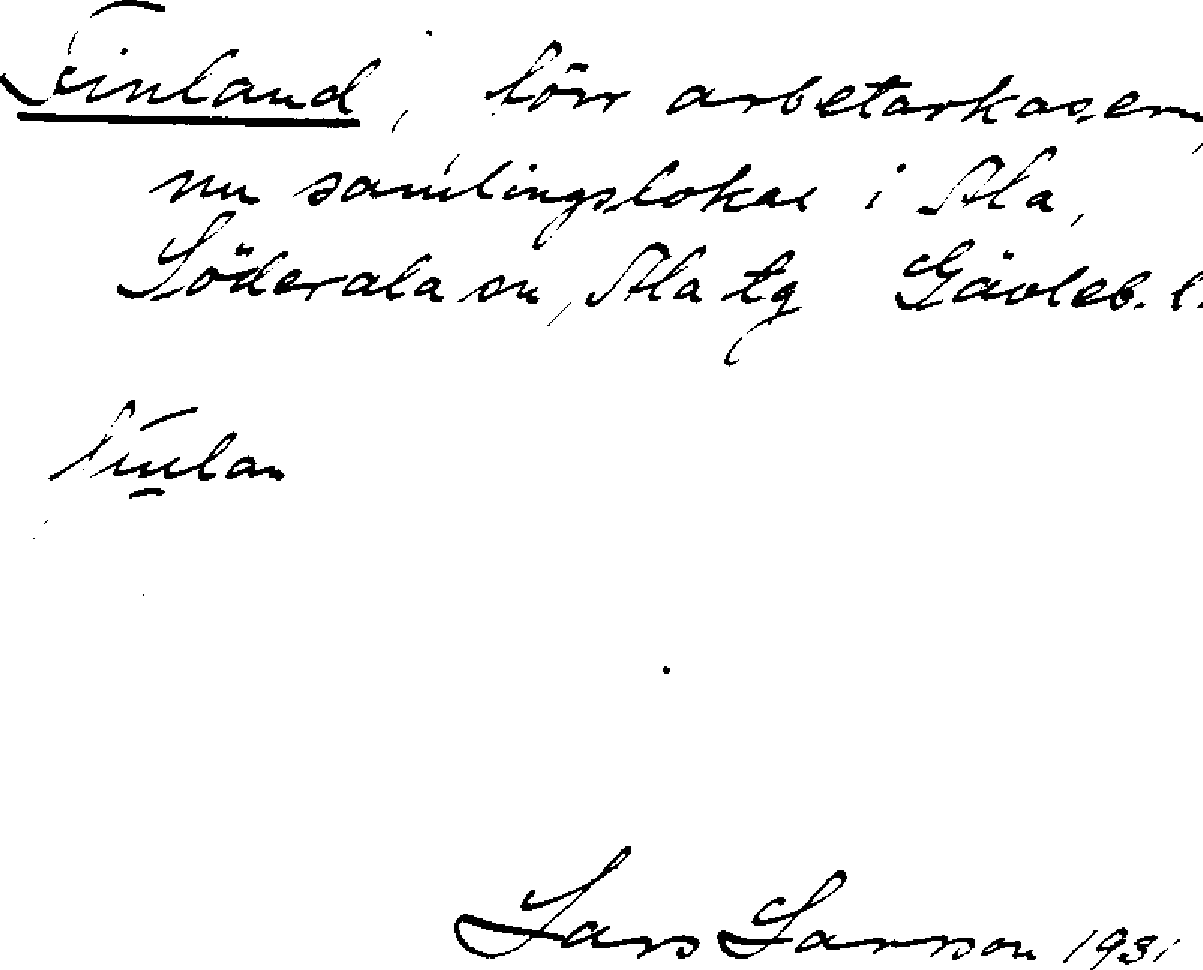 Finland, förr arbetarkasern,
nu samlingslokal i Ala,
Söderala sn, Ala tg Gävleb. l.
Lars Larsson 1931